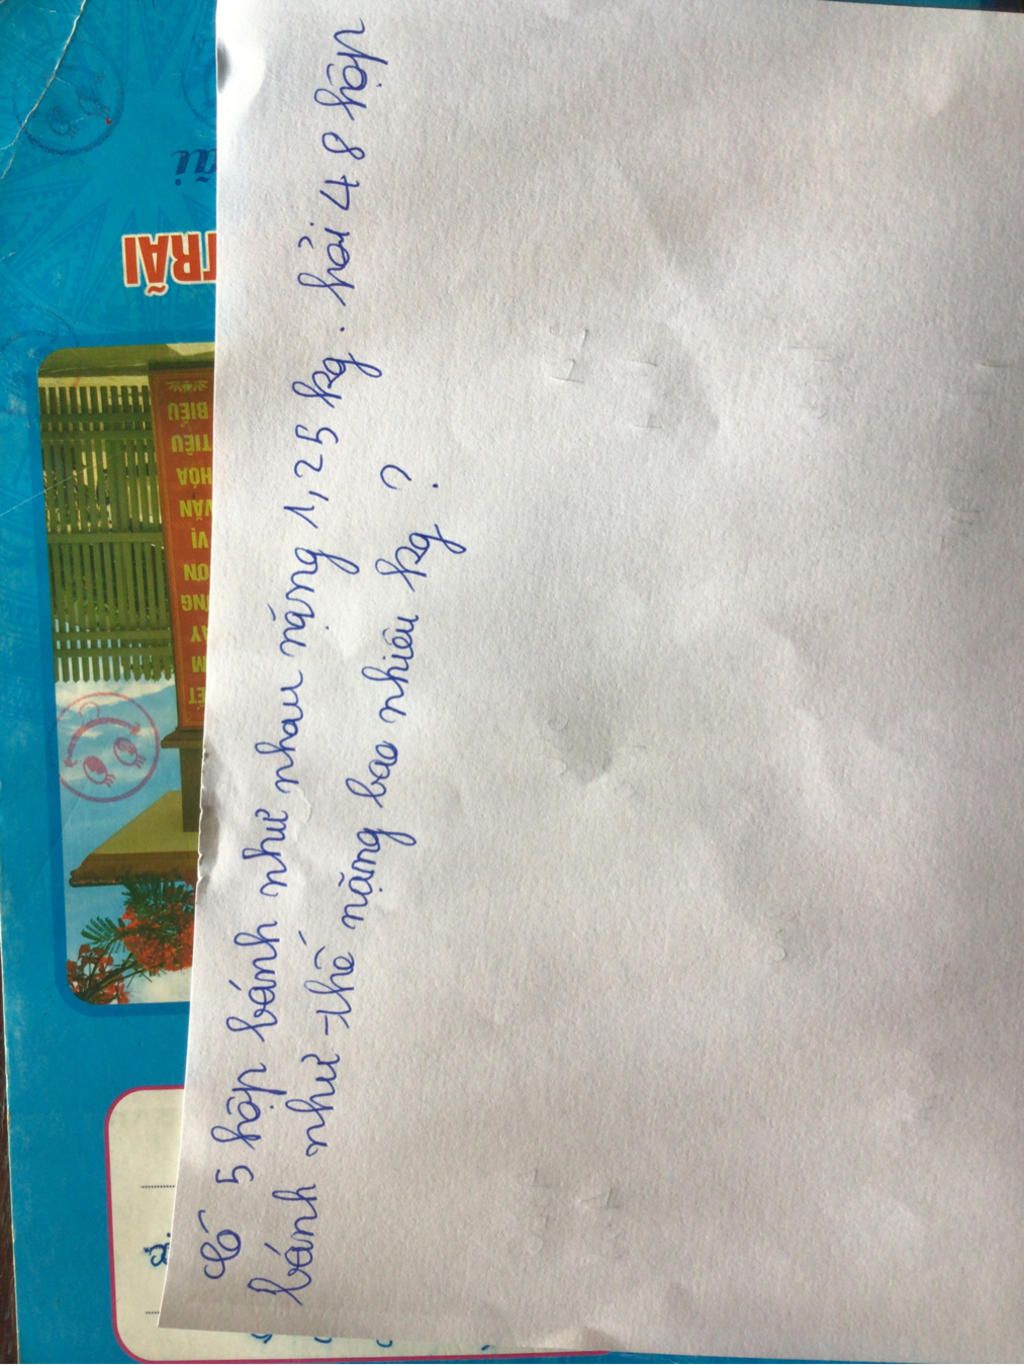 Có 5 hộp bánh như nhau nặng 1,25 kg. hỏi 48 hộp
bánh như thế nặng bao nhiêu kg ?
TRÃI
ãi
BIỂU
TIÊU
HÓA
VĂN
VỊ
ƠN